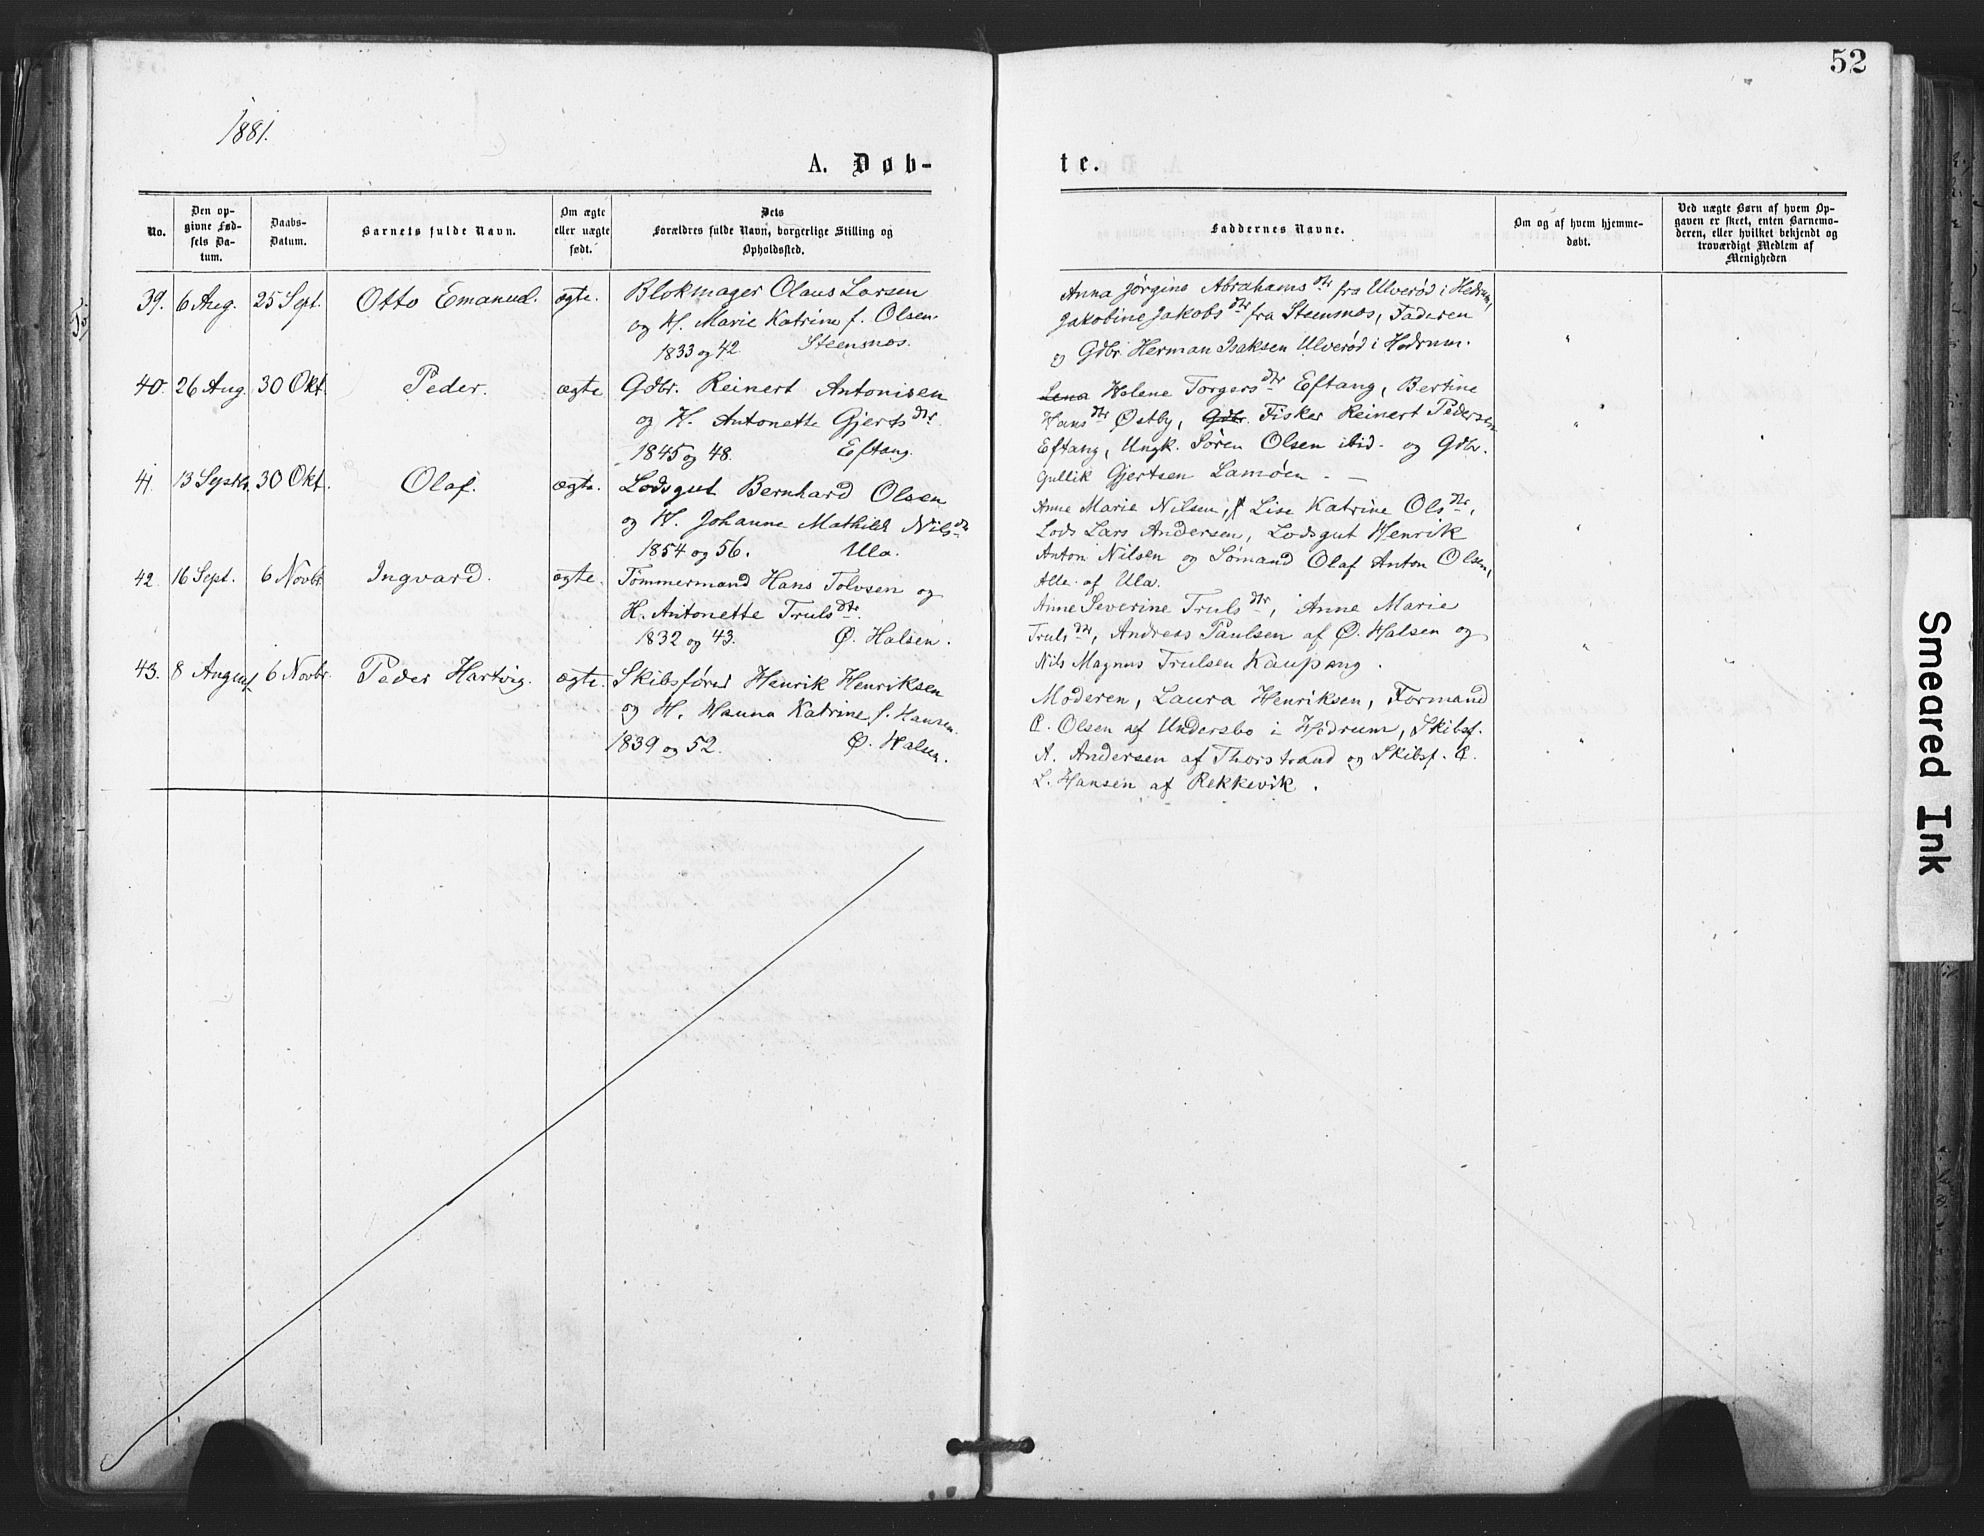 52
1881.
A. Døb-
te.
No.
Den op-
givne Fød-
sels Da-
tum.
Daabs-
Datum.
Barnets fulde Navn.
Om ægte
eller uægte
født.
Dets
Forældres fulde Navn, borgerlige Stilling og
Opholdssted.
Faddernes Navne.
Om og af hvem hjemme-
døbt.
Ved uægte Børn af hvem Op-
gaven er skeet, enten Barnemo-
deren, eller hvilket bekjendt og
troværdigt Medlem af
Menigheden
39. 6 Aug. 25 Sept. Otto Emanuel. ægte. Blokmager Olaus Larsen
og H. Marie Katrine f. Olsen
1833 og 42. Steensnes.
Anna Jørgine Abrahamsdtr fra Ulverød i Hedrum,
Jakobine Jakobsdtr fra Steensnes, Faderen
og Gdbr. Herman Isaksen Ulverød i Hedrum.
40. 26 Aug. 30 Okt. Peder. ægte Gdbr. Reinert Antonisen
og H. Antonette Gjertsdtr.
1845 og 48. Eftang.
Lena Helene Torgersdtr Eftang, Bertine
Hansdtr Østby, Gdbr. Fisker Reinert Pedersen
Eftang, Ungk. Søren Olsen ibid. og Gdbr.
Gullik Gjertsen Lamøen. —
41. 13 Septbr. 30 Okt. Olaf. ægte. Lodsgut Bernhard Olsen
og H. Johanne Mathild Nilsdtr
1854 og 56. Ula.
Anne Marie Nilsen, Lise Katrine Olsdtr,
Lods Lars Andersen, Lodsgut Henrik
Anton Nilsen og Sømand Olaf Anton Olsen,
Alle af Ula.
42. 16 Sept. 6 Novbr Ingvard. ægte. Tømmermand Hans Tolvsen og
H. Antonette Trulsdtr.
1832 og 43. Ø. Halsen.
Anne Severine Trulsdtr, Anne Marie
Trulsdtr, Andreas Paulsen af Ø. Halsen og
Nils Magnus Trulsen Kaupang.
43. 8 August 6 Novbr. Peder Hartvig. ægte. Skibsfører Henrik Henriksen
og H. Hanna Katrine f. Hansen.
1839 og 52. Ø. Halsen.
Moderen, Laura Henriksen, Formand
C. Olsen af Undersbo i Hedrum, Skibsf.
A. Andersen af Thorstrand og Skibsf. C.
L. Hansen af Rekkevik.
Smeared Ink